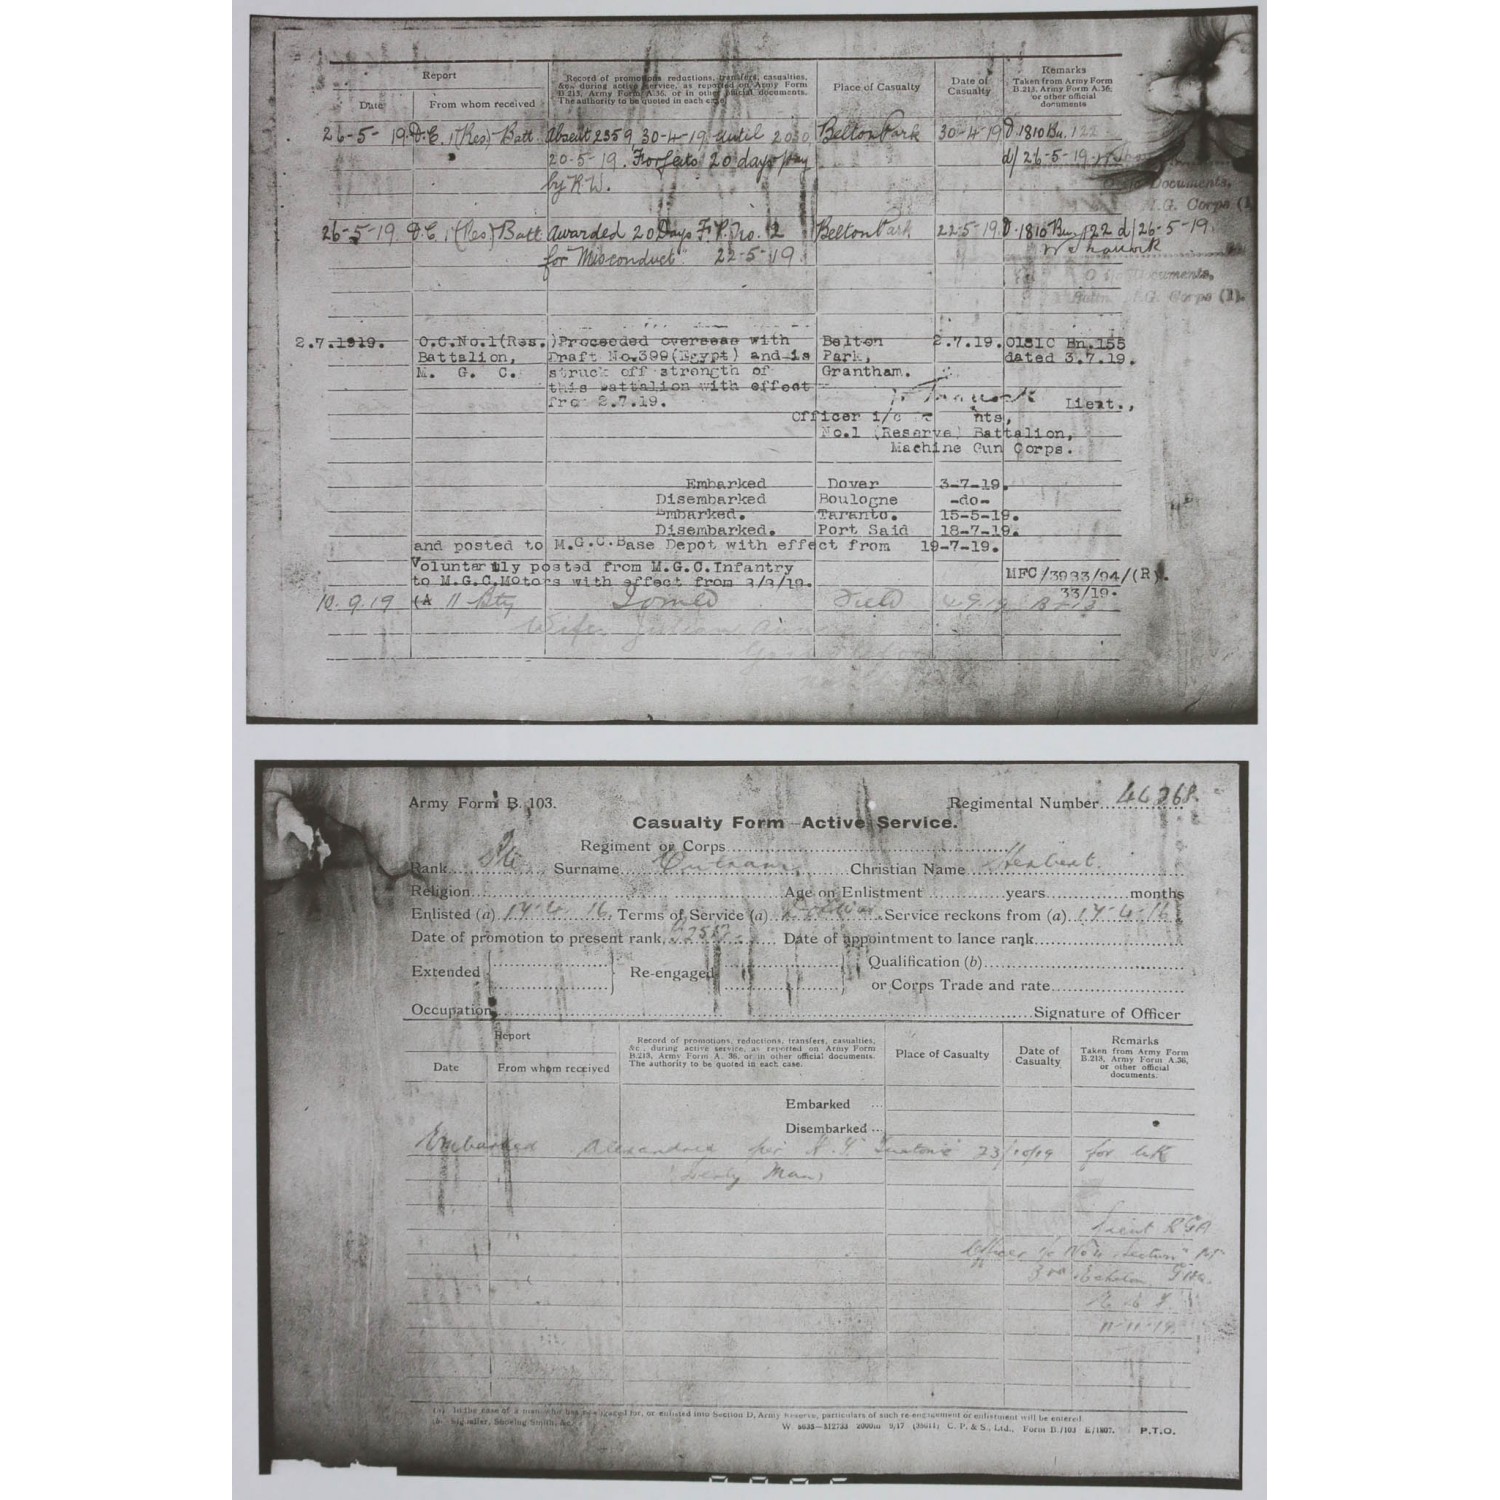 Report
Record of promotions, reductions, transfers, casualties, &c., during active service, as reported on Army Form B.213, Army Form A.36, or in other official documents. The authority to be quoted in each case
Place of Casualty
Date of Casualty
Remarks Taken from Army Form B.213, Army Form A.36, or other official documents
Date
From whom received
26-5-19. O.C. 1 (Res) Batt. Absent 2359 30-4-19 until 2030 Belton Park 30-4-19 1810 Bn. 122
20-5-19. Forfeits 20 days pay d/ 26-5-19
by R.W.
Documents,
M.G. Corps (I
26-5-19. O.C. 1 (Res) Batt Awarded 20 Days F.P. No. 2 Belton Park 22-5-19. 1810 Bn 122 d/26-5-19.
for "Misconduct" 22-5-19.
Documents,
M.G. Corps (I).
2.7.1919. O.C.No.1(Res.)Proceeded overseas with Belton 2.7.19. O1SIC Bn.155
Battalion, Draft No.399(Egypt) and is Park, dated 3.7.19.
M. G. C. struck off strength of Grantham.
this battalion with effect
fro 2.7.19. Lieut.,
Officer i/c nts,
No.1 (Reserve) Battalion,
Machine Gun Corps.
Embarked Dover 3-7-19.
Disembarked Boulogne -do-
Embarked. Taranto. 15-5-19.
Disembarked. Port Said 18-7-19.
and posted to M.G.C.Base Depot with effect from 19-7-19.
Voluntarily posted from M.G.C.Infantry
to M.G.C.Motors with effect from 3/8/19. MFC/3983/94/(R).
33/19.
10.9.19 11 Bty Joined Field 4.9.19 B213
Wife
Army Form B. 103.
Regimental Number 46268
Casualty Form—Active Service.
Regiment or Corps
Rank Pte Surname Christian Name Herbert.
Religion Age on Enlistment years months
Enlisted (a) 17-4-16. Terms of Service (a) Service reckons from (a) 17-4-16
Date of promotion to present rank Date of appointment to lance rank
Extended Re-engaged Qualification (b)
or Corps Trade and rate
Occupation Signature of Officer
Report
Record of promotions, reductions, transfers, casualties, &c., during active service, as reported on Army Form B.213, Army Form A. 36, or in other official documents. The authority to be quoted in each case.
Place of Casualty
Date of Casualty
Remarks Taken from Army Form B.213, Army Form A.36, or other official documents.
Date
From whom received
Embarked
Disembarked
Embarked Alexandria per H.T. 23/10/19 for UK
Man)
Lieut RGA
Officer i/c No 4 Section
3rd Echelon G.H.Q.
11-11-19.
(a) In the case of a man who has re-engaged for, or enlisted into Section D, Army Reserve, particulars of such re-engagement or enlistment will be entered.
(b) Signaller, Shoeing Smith, &c.
P.T.O.